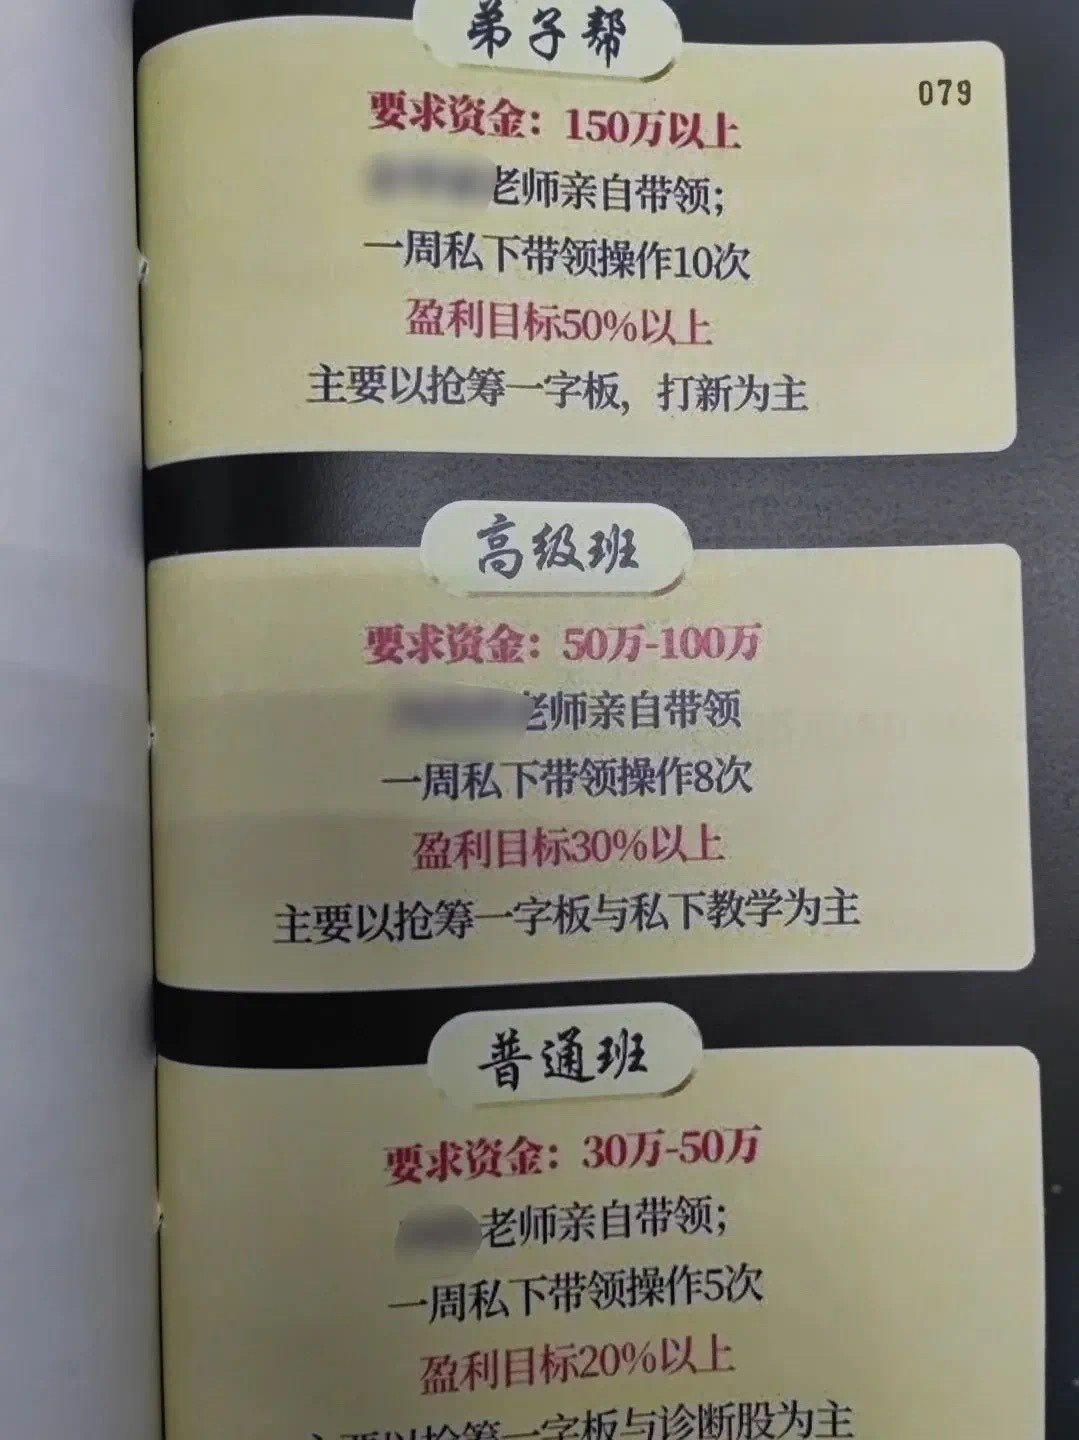 弟子帮
079
要求资金：150万以上
老师亲自带领；
一周私下带领操作10次
盈利目标50%以上
主要以抢筹一字板，打新为主
高级班
要求资金：50万-100万
老师亲自带领
一周私下带领操作8次
盈利目标30%以上
主要以抢筹一字板与私下教学为主
普通班
要求资金：30万-50万
老师亲自带领；
一周私下带领操作5次
盈利目标20%以上
主要以抢筹一字板与诊断股为主